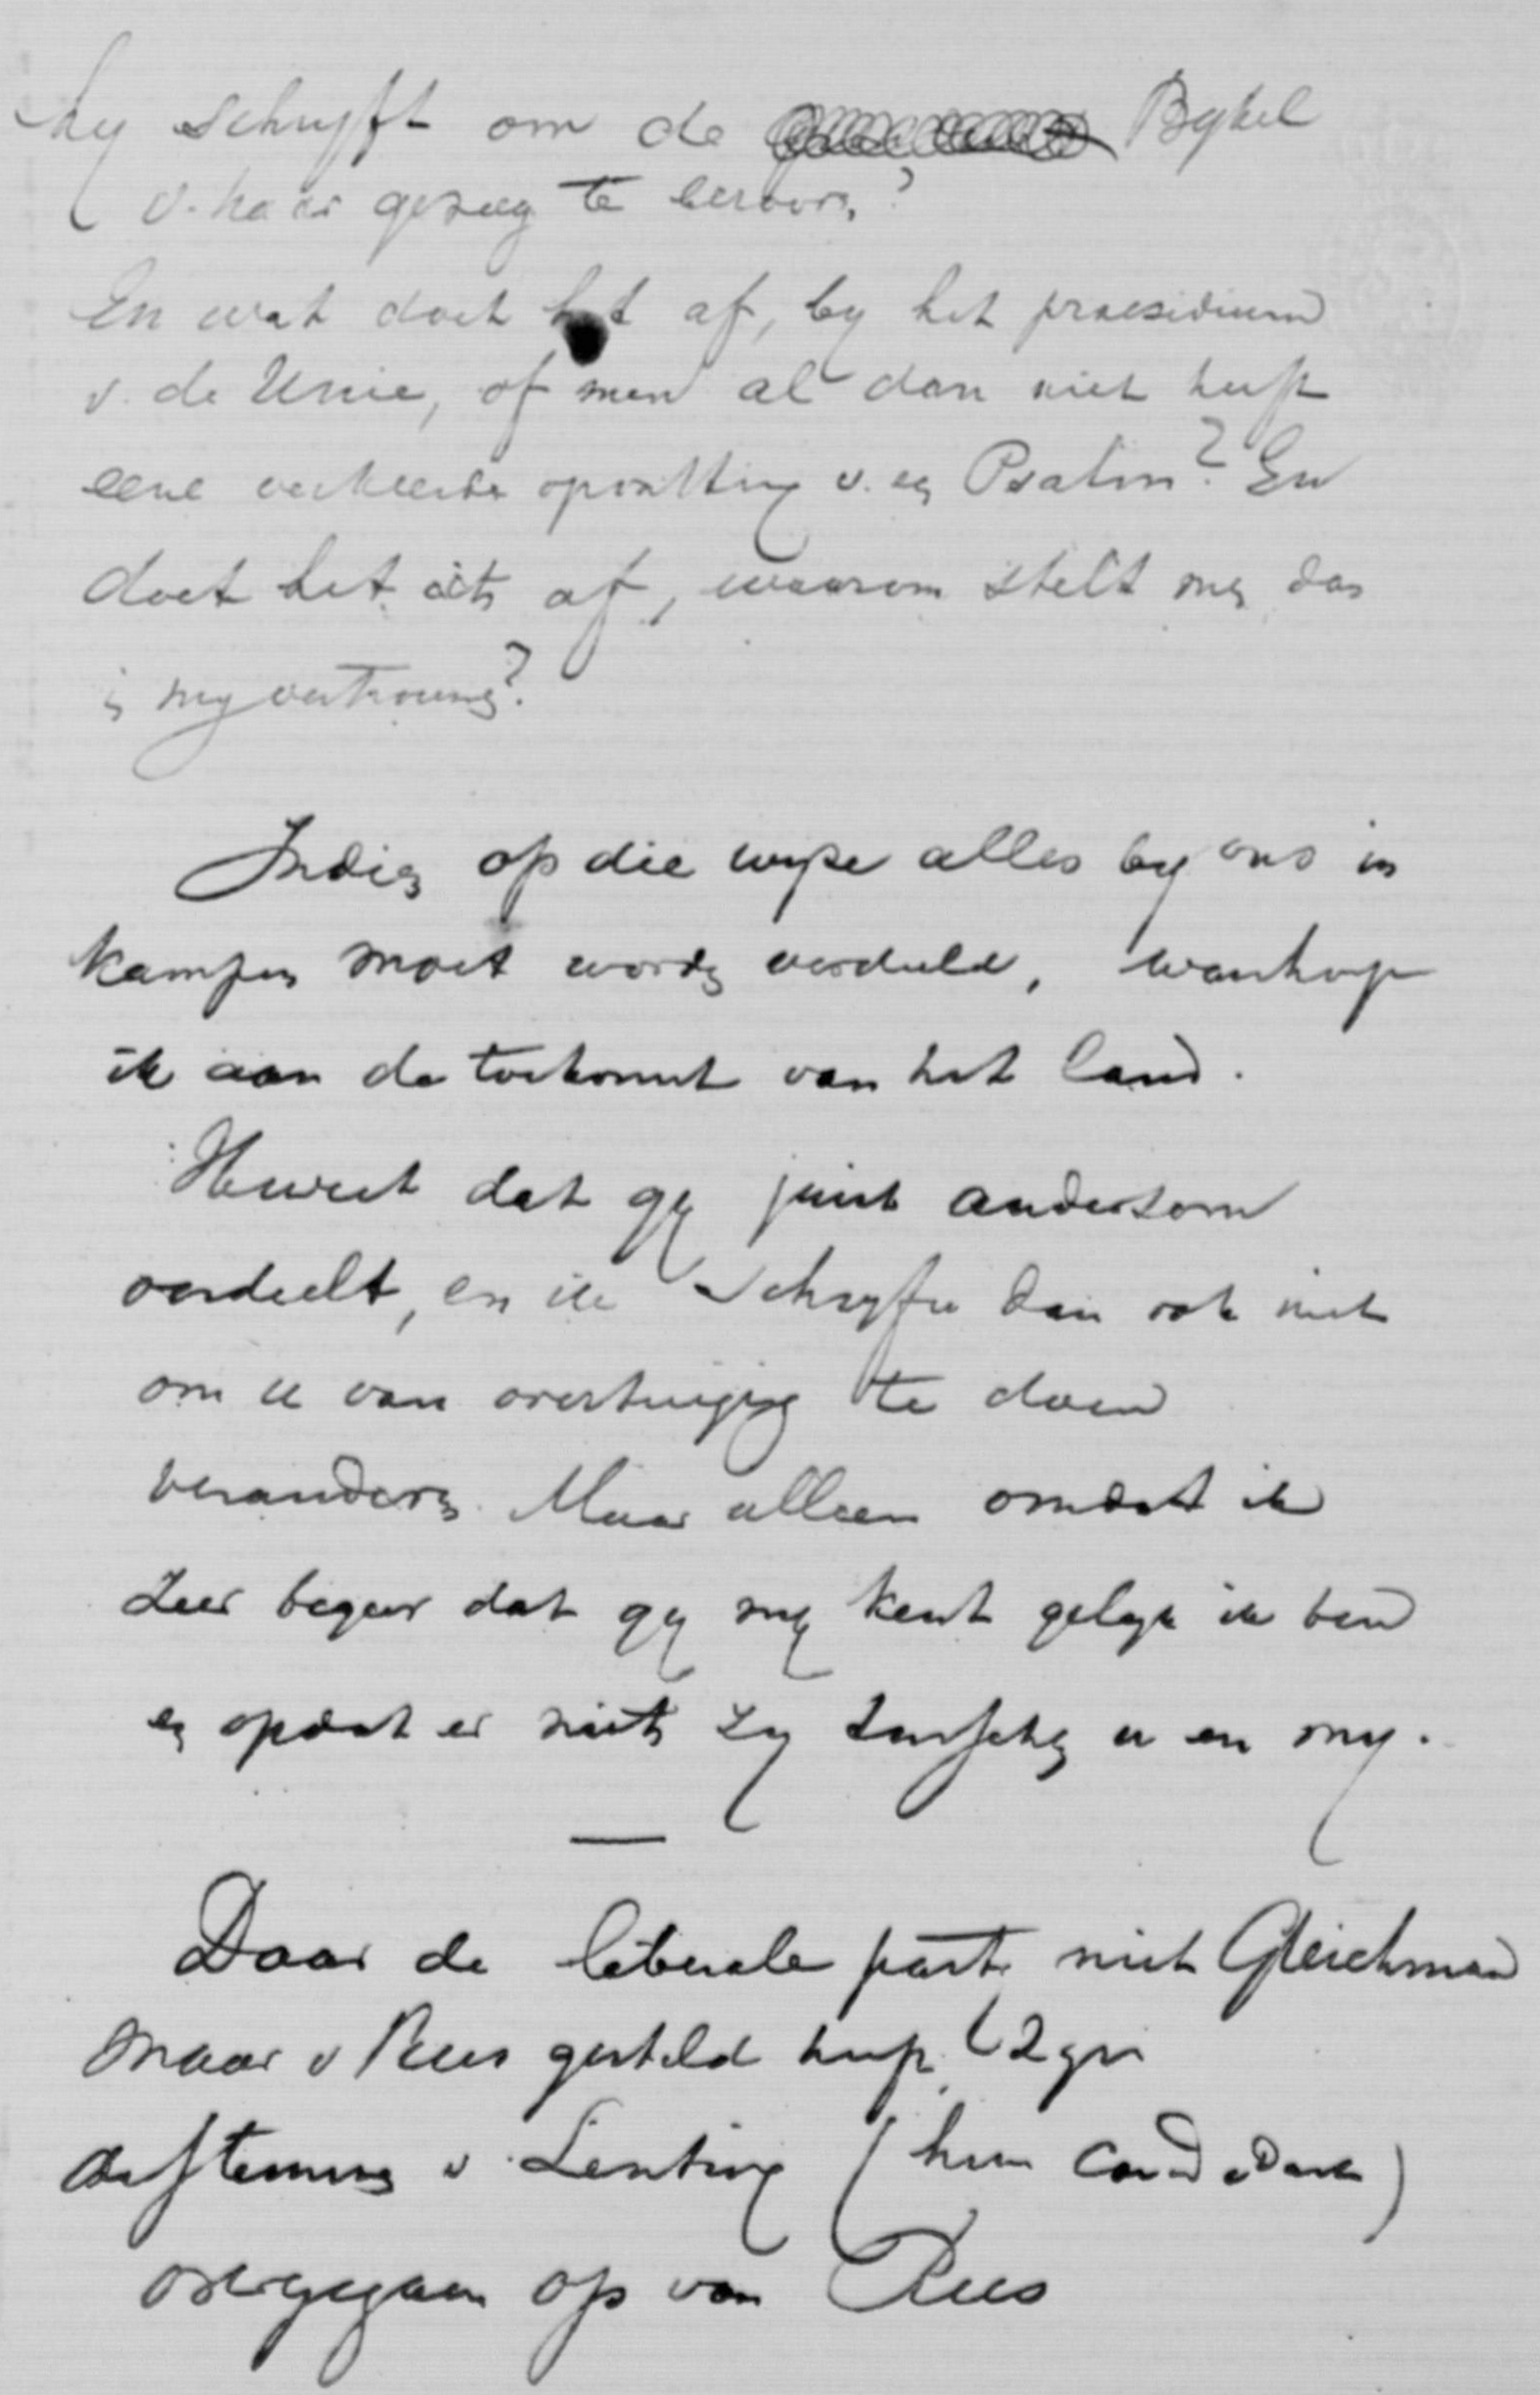 hy schryft om de Bybel
v. haar gezag te beroov.?
En wat doet het af, by het praesidium
v. de Unie, of men al dan niet heeft
eene verkeerde opvatting v. en Psalm? En
doet het iets af, waarom stelt mn dan
in my vertrouwn?
Indien op die wyze alles by ons in
kampen moet worden verdeeld, wanhoop
ik aan de toekomst van het land.
Ik weet dat gy juist andersom
oordeelt, en ik schryf u dan ook niet
om u van overtuiging te doen
veranderen. Maar alleen omdat ik
zeer begeer dat gy my kent gelyk ik ben
en opdat er niets zy tusschen u en my.
—
Daar de liberale part. niet Gleichman
maar v Rees gesteld heeft
de stemming v. Lenting (hun candidaat)
overgegaan op van Rees